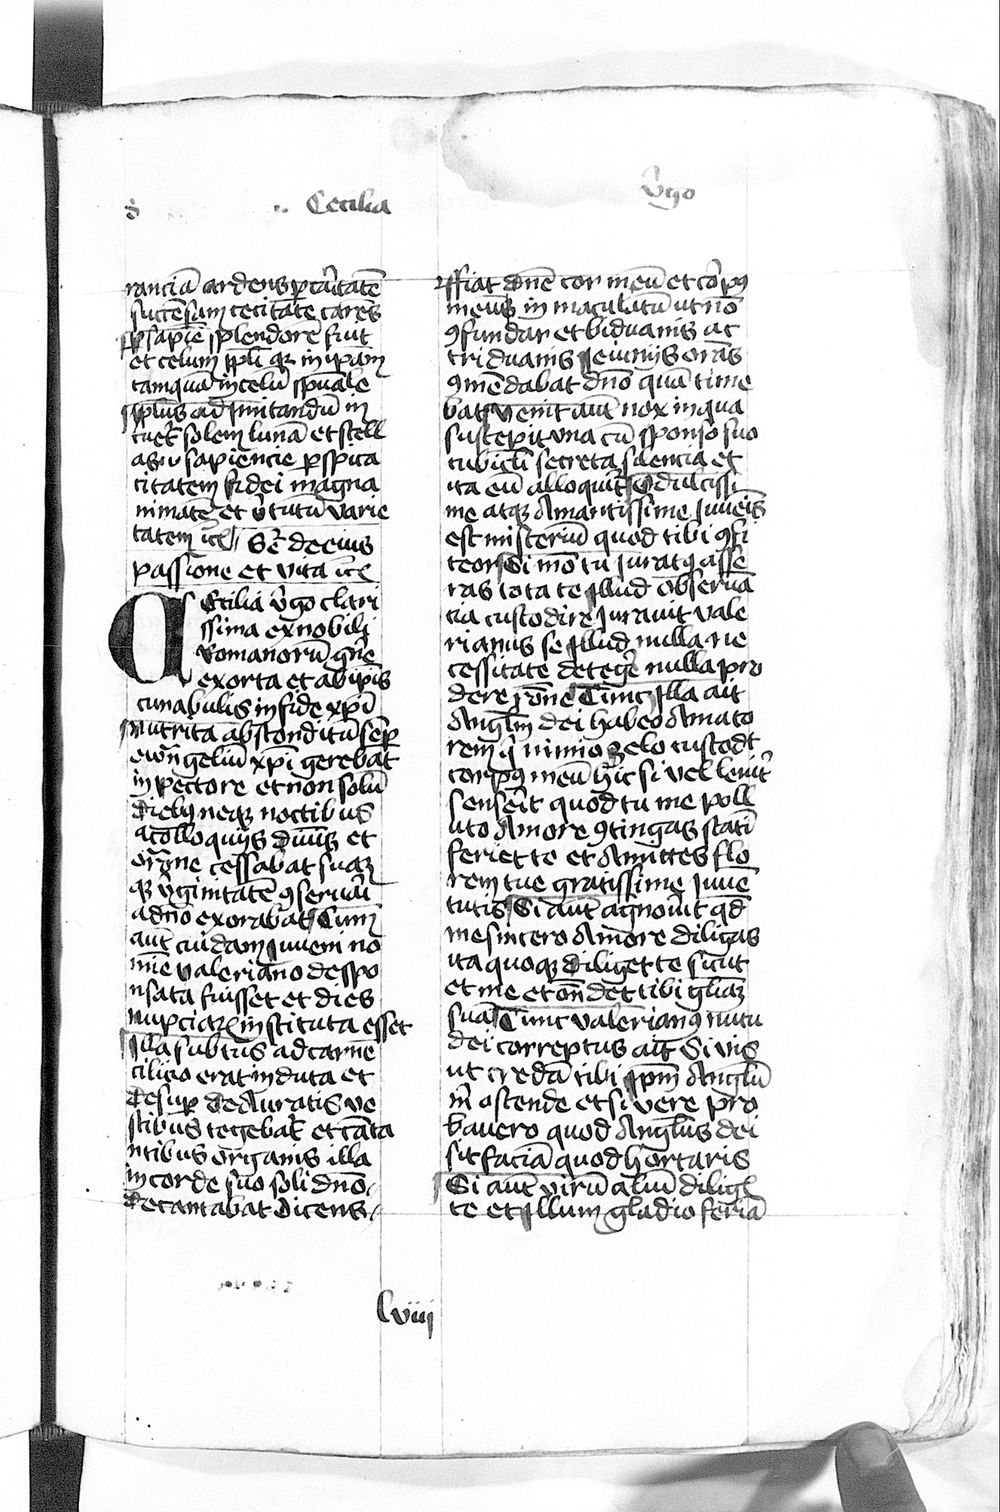 S Cecilia Vgo
ranciā ardens p caritatē
succensam cecitate carens
ꝑ sapiē splendorē fuit
et celum ppli qꝫ in ipam
tamquā in celū spūale
pplus ad imitandū in
tuet solem lunā et stell
as i sapiencie ꝑspica
citatem fidei magna
nimitatē et vtutū varie
tatem ic̄ Seq̄ de eius
passione et vita ic̄
Cecilia v̄go clari
ssima ex nobili
romanorū gn̄e
exorta et ab ipis
cunabulis in fide xp̄i
nutrita absconditū semꝑ
ewangeliū xp̄i gerebat
in pectore et non solū
diebꝰ neqꝫ noctibus
a colloquijs diuīs et
orōne cessabat suāqꝫ
qꝫ v̄ginitatē ꝯseruāi
a dn̄o exorabat Cum
aut̄ cuidam iuueni no
mīe valeriano despo
nsata fuisset et dies
nupciaꝝ instituta esset
illa subtus ad carnē
cilicio erat induta et
desuꝑ deauratis ve
stibus tegebat̄ et canta
ntibus organis illa
in corde suo soli dn̄o
decantabat dicens
Fiat dn̄e cor meū et corpꝰ
meum in maculatū ut nō
ꝯfundar et biduanis ac
triduanis ieiunijs orās
ꝯmedabat dn̄o quā time
bat Venit aut̄ nox in qua
suscepit vna cū sponso suo
cubic̄li secreta silencia et
ita eū alloquit̄ O dulcissi
me atqꝫ amantissime iuuenis
est misteriū quod tibi ꝯfi
teor Si mō tu iuratꝰ asse
ras tota te illud obseruā
cia custodire Jurauit vale
rianus se illud nulla ne
cessitate deteḡe nulla pro
dere rōne Tunc illa ait
Anglm̄ dei habeo amato
rem q̄ nimio zelo custodt
corpꝰ meū hic si vel leuit̄
sensēit quod tu me poll
uto amore ꝯtingas statī
feriet te et amittes flo
rem tue gratissime iuuē
tutis Si aut̄ agnouit qd̄
me sincero amore diligas
ita quoqꝫ diliget te sicut
et me et on̄det tibi gliaꝫ
suā Tunc valerianꝰ nutu
dei correptus ait Si vis
ut credā tibi ipm̄ anglū
m̄ ostende et si vere pro
bauero quod anglus dei
sit faciā quod hortaris
Si aut̄ virū aliū diligi
te et illum gladio feriā
lviij